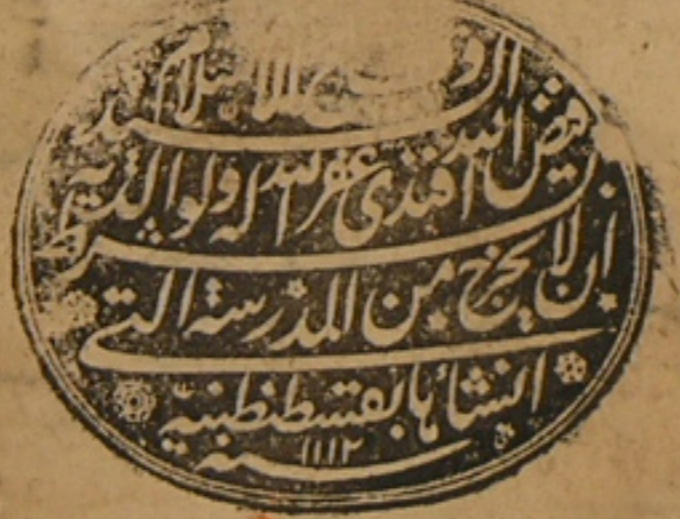 الاسلام السيد
فيض الله افندى غفر الله له ولوالديه
بشرط
ان لا يخرج من المدرسة التى
انشأها بقسطنطنية
سنة ١١١٢